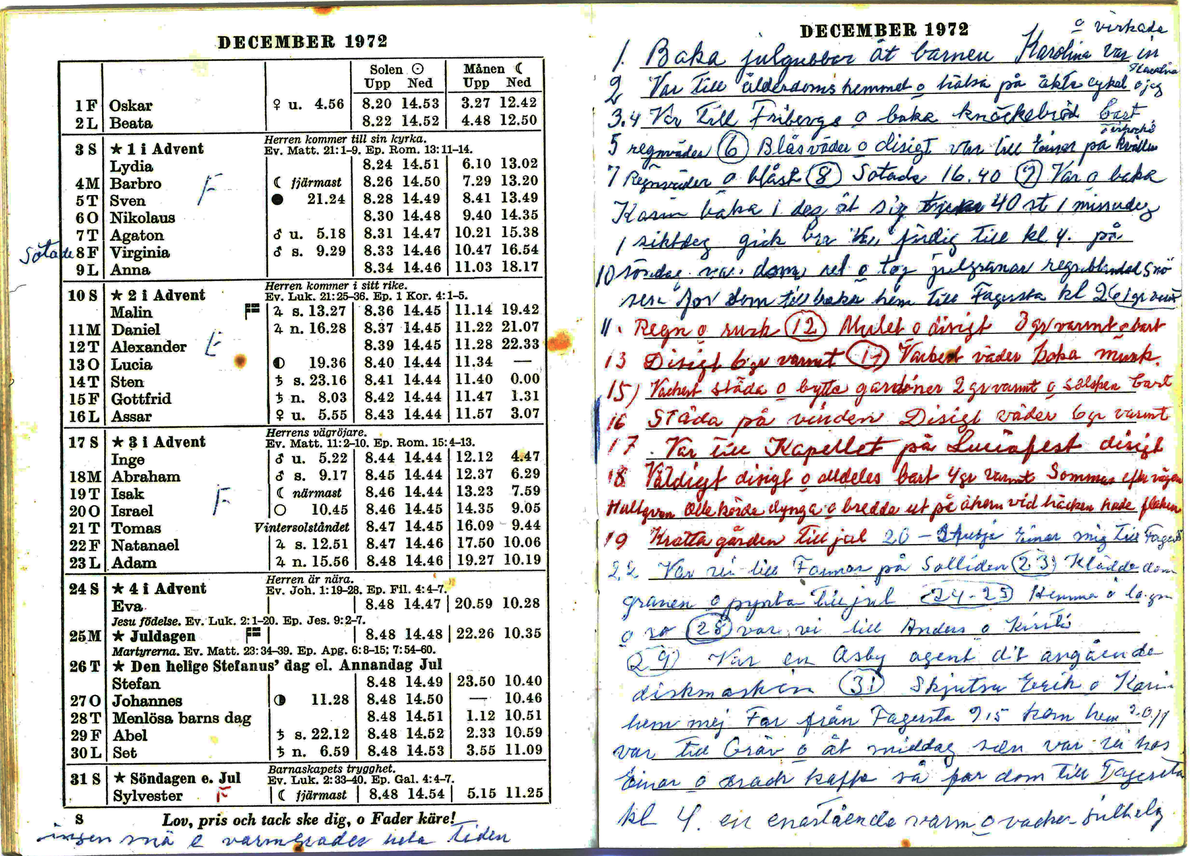 DECEMBER 1972
Solen Månen
Upp Ned Upp Ned
1 F Oskar ♀ u. 4.56 8.20 14.53 3.27 12.42
2 L Beata 8.22 14.52 4.48 12.50
3 S ★ 1 i Advent Herren kommer till sin kyrka.
Ev. Matt. 21: 1-9. Ep. Rom. 13: 11-14.
Lydia 8.24 14.51 6.10 13.02
4 M Barbro F ☾ fjärmast 8.26 14.50 7.29 13.20
5 T Sven ● 21.24 8.28 14.49 8.41 13.49
6 O Nikolaus 8.30 14.48 9.40 14.35
7 T Agaton ♂ u. 5.18 8.31 14.47 10.21 15.38
Sotade 8 F Virginia ♂ s. 9.29 8.33 14.46 10.47 16.54
9 L Anna 8.34 14.46 11.03 18.17
10 S ★ 2 i Advent Herren kommer i sitt rike.
Ev. Luk. 21: 25-36. Ep. 1 Kor. 4: 1-5.
Malin ♃ s. 13.27 8.36 14.45 11.14 19.42
11 M Daniel ♃ n. 16.28 8.37 14.45 11.22 21.07
12 T Alexander 8.39 14.45 11.28 22.33
13 O Lucia ◐ 19.36 8.40 14.44 11.34 —
14 T Sten ♄ s. 23.16 8.41 14.44 11.40 0.00
15 F Gottfrid ♄ n. 8.03 8.42 14.44 11.47 1.31
16 L Assar ♀ u. 5.55 8.43 14.44 11.57 3.07
17 S ★ 3 i Advent Herrens vägröjare.
Ev. Matt. 11: 2-10. Ep. Rom. 15: 4-13.
Inge ♂ u. 5.22 8.44 14.44 12.12 4.47
18 M Abraham ♂ s. 9.17 8.45 14.44 12.37 6.29
19 T Isak F ☾ närmast 8.46 14.44 13.23 7.59
20 O Israel ○ 10.45 8.46 14.44 14.35 9.05
21 T Tomas Vintersolståndet 8.47 14.45 16.09 9.44
22 F Natanael ♃ s. 12.51 8.47 14.46 17.50 10.06
23 L Adam ♃ n. 15.56 8.48 14.46 19.27 10.19
24 S ★ 4 i Advent Herren är nära.
Ev. Joh. 1: 19-28. Ep. Fil. 4: 4-7.
Eva 8.48 14.47 20.59 10.28
Jesu födelse. Ev. Luk. 2: 1-20. Ep. Jes. 9: 2-7.
25 M ★ Juldagen 8.48 14.48 22.26 10.35
Martyrerna. Ev. Matt. 23: 34-39. Ep. Apg. 6: 8-15; 7: 54-60.
26 T ★ Den helige Stefanus' dag el. Annandag Jul
Stefan 8.48 14.49 23.50 10.40
27 O Johannes ◑ 11.28 8.48 14.50 — 10.46
28 T Menlösa barns dag 8.48 14.51 1.12 10.51
29 F Abel ♄ s. 22.12 8.48 14.52 2.33 10.59
30 L Set ♄ n. 6.59 8.48 14.53 3.55 11.09
31 S ★ Söndagen e. Jul Barnaskapets trygghet.
Ev. Luk. 2: 33-40. Ep. Gal. 4: 4-7.
Sylvester F ☾ fjärmast 8.48 14.54 5.15 11.25
8 Lov, pris och tack ske dig, o Fader käre!
ingen snö o varmgrader hela tiden
DECEMBER 1972
o virkade
1. Baka julgubbar åt barnen Karolina var in
2 Var till ålderdomshemmet o hälsa på åkte cykel o jag
Karolina
3.4 Var till Fribergs o baka knäckebröd bart
5 regnväder (6) Blåsväder o disigt var till Einar på kvällen
7 Regnväder o blåst (8) Sotade 16.40 (9) Var o baka
Karin baka i deg åt sig 40 st 1 missudeg
1 siktdeg gick bra färdig till kl 4. på
10 söndag var dom ret o tog julgranar regnblandad snö
sen for dom tillbaka hem till Fagersta kl 2 6 1 gr
11. Regn o rusk (12) Mulet o disigt 3 gr varmt o bart
13 Disigt 6 gr varmt (14) Vackert väder koka
15) Vackert städa o bytte gardiner 2 gr varmt o solsken bart
16 Städa på vinden Disigt väder 6 gr varmt
17. Var till Kapellet på Luciafest disigt
18 Väldigt disigt o alldeles bart 4 gr varmt efter vägen
Hultgren Olle körde dynga o bredde ut på åkern vid bäcken hade
19 Kratta gården till jul 20 - Skutja Einar mig till Fagersta
22 Var vi till Farmor på Solliden (23) Klädde dom
granen o pynta till jul (24-25) Hemma o lugn
o ro (28) var vi till Anders o Kirsti
(29) Var en Asby agent dit angående
diskmaskin (31) Skjutsa Erik o Karin
hem mej Far från Fagersta 9.15 kom hem
var till Gräv o åt middag sen var vi hos
Einar o drack kaffe så far dom till Fagersta
kl 4. en enastående varm o vacker julhelg